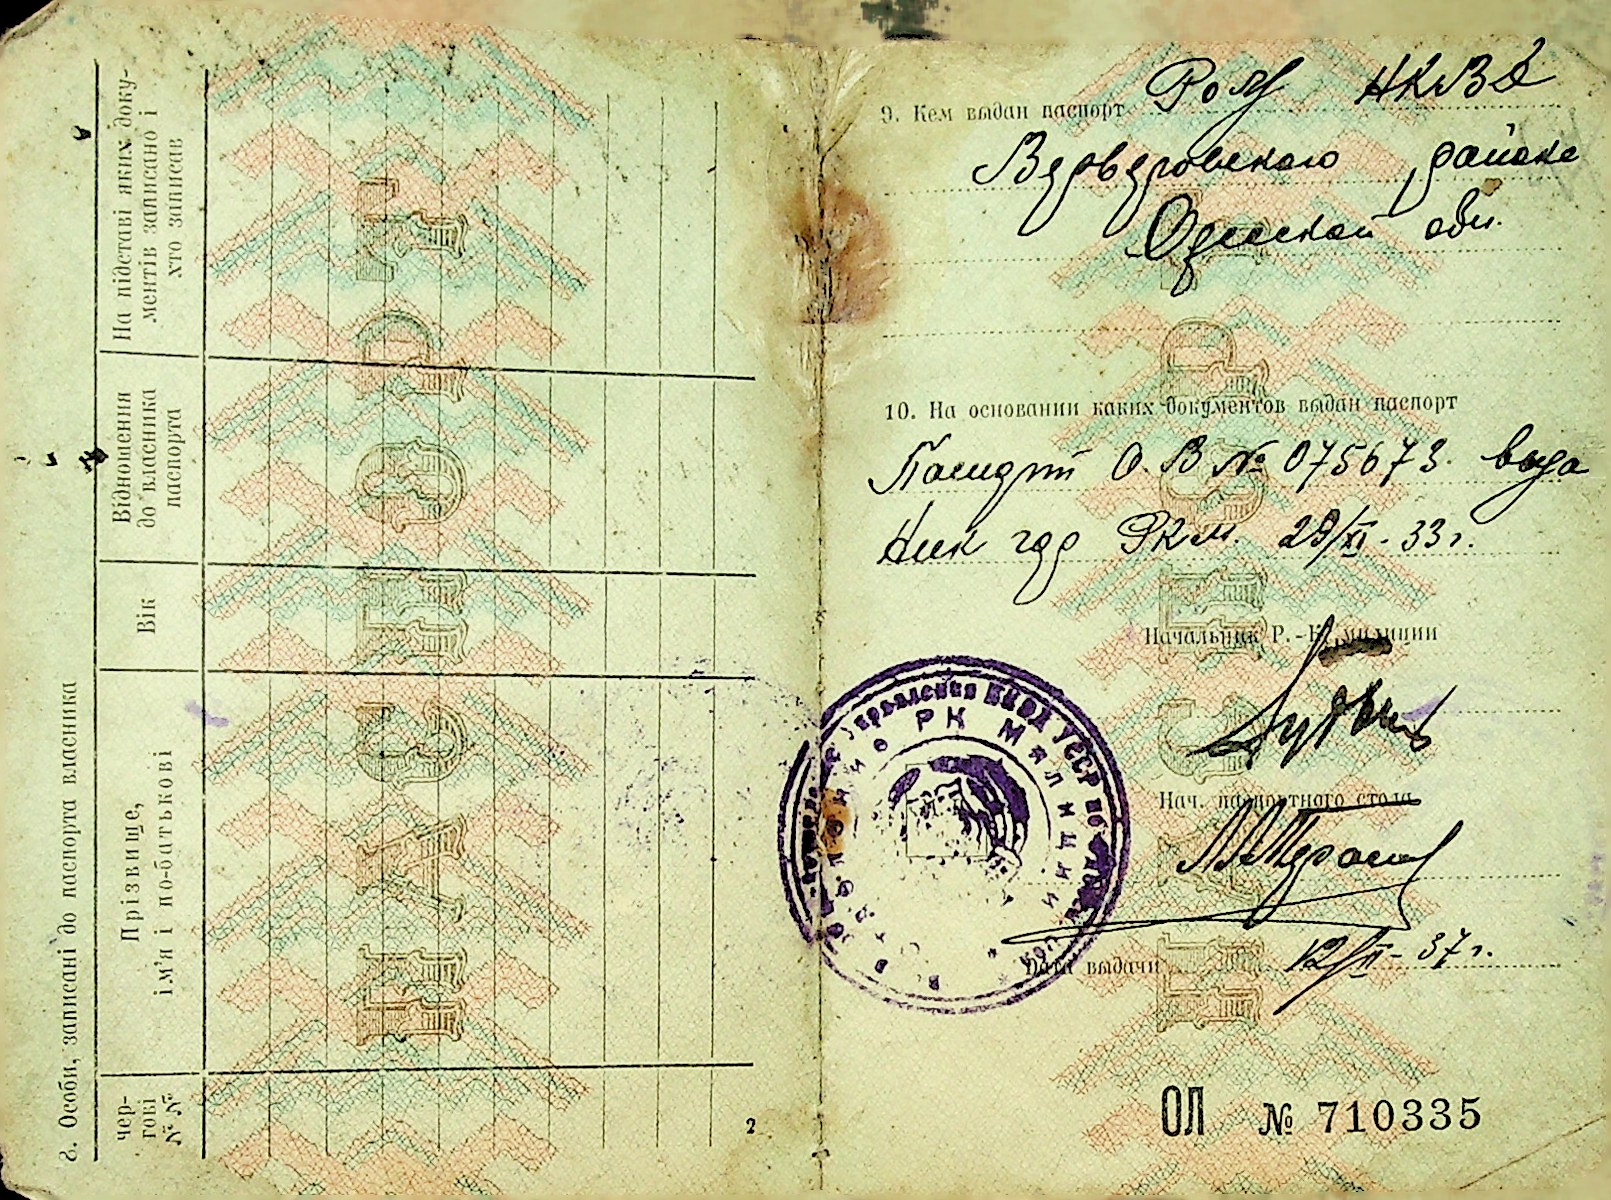 8. Особи, записані до паспорта власника
чер-
гові
№№
Прізвище,
ім'я і по-батькові
Вік
Відношення
до власника
паспорта
На підставі яких доку-
ментів записано і
хто записав
ПАСПОРТ
2
9. Кем выдан паспорт НКВД
района
Одесской обл.
10. На основании каких документов выдан паспорт
Паспорт О.В № 075673. выда
Ник гор РКМ. 29/XI-33г.
Начальник Р.-К. милиции
Нач. паспортного стола
Дата выдачи 12/II-37г.
Управления НКВД УССР по
РК Милиции
ОЛ № 710335